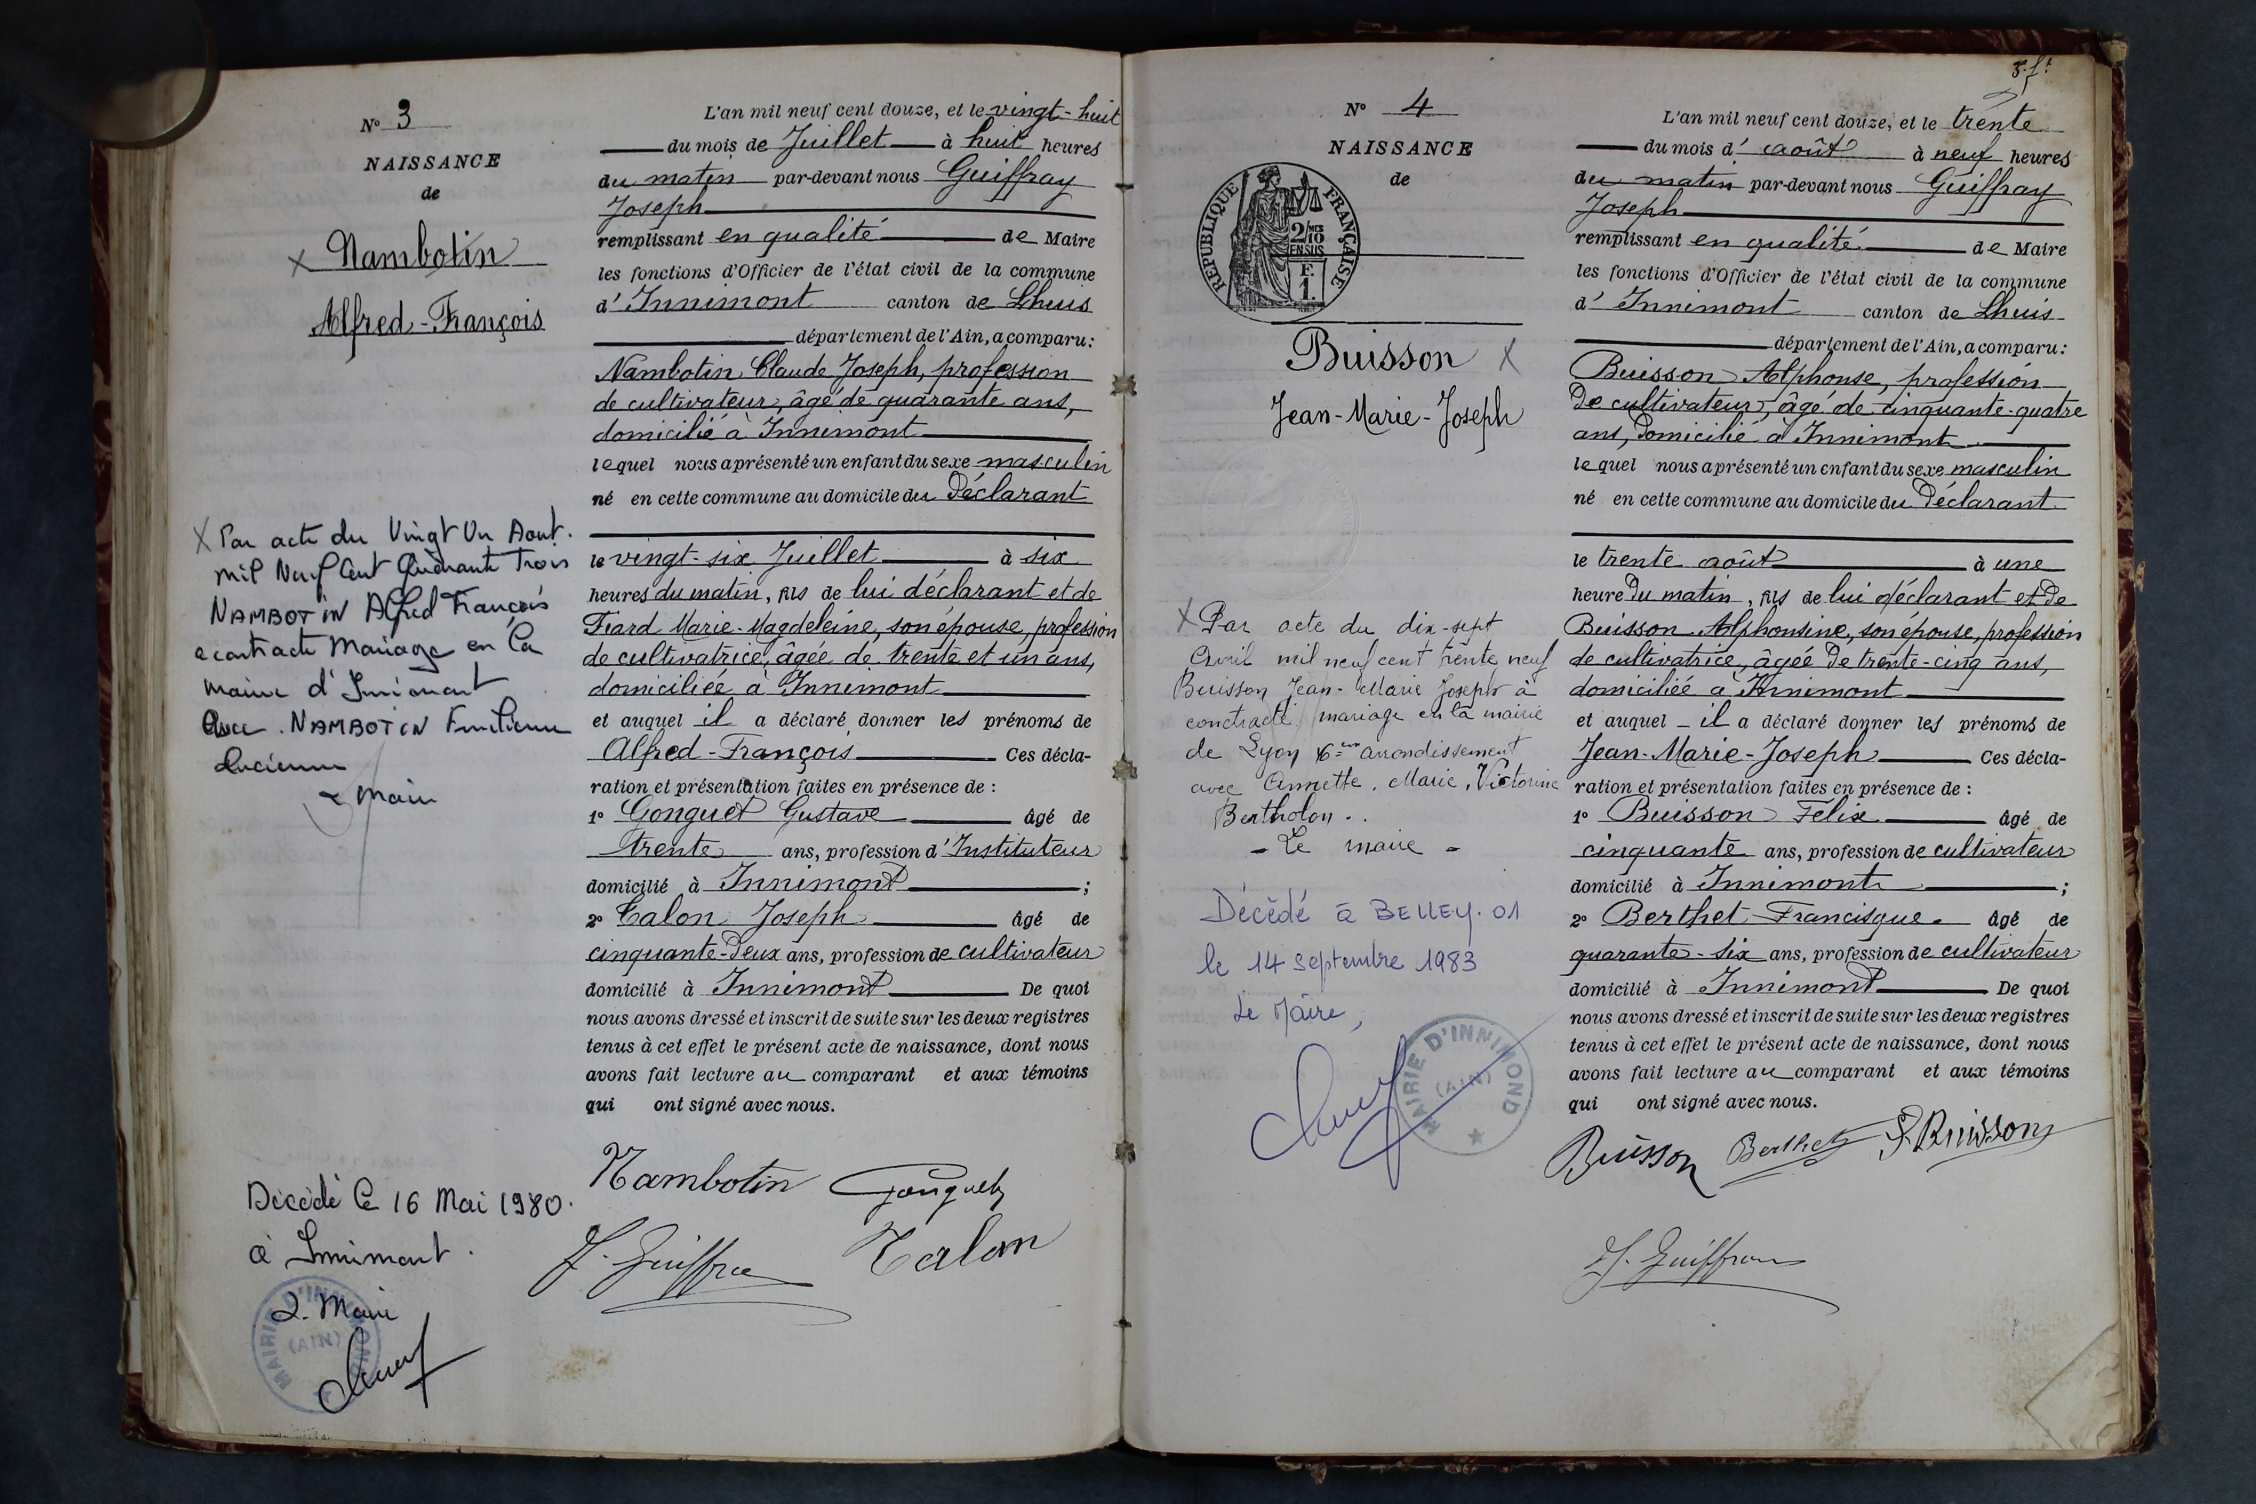 N° 3
NAISSANCE
de
X Nambotin
Alfred-François
X Par acte du Vingt Un Aout.
mil Neuf Cent Quarante Trois
NAMBOTIN Alfred François
a contracté Mariage en la
mairie d'Innimont
avec. NAMBOTIN Emilienne
Lucienne
Le Maire
Décédé le 16 Mai 1980.
à Innimont.
L. Maire
MAIRIE D'INNIMOND
(AIN)
L'an mil neuf cent douze, et le vingt-huit
du mois de Juillet à huit heures
du matin par-devant nous Guiffray
Joseph
remplissant en qualité de Maire
les fonctions d'Officier de l'état civil de la commune
d'Innimont canton de Lhuis
département de l'Ain, a comparu:
Nambotin Claude Joseph, profession
de cultivateur, âgé de quarante ans,
domicilié à Innimont
lequel nous a présenté un enfant du sexe masculin
né en cette commune au domicile du Déclarant
le vingt-six Juillet à six
heures du matin, fils de lui déclarant et de
Fiard Marie-Magdeleine, son épouse, profession
de cultivatrice, âgée de trente et un ans,
domiciliée à Innimont
et auquel il a déclaré donner les prénoms de
Alfred-François Ces décla-
ration et présentation faites en présence de :
1° Gonguet Gustave âgé de
trente ans, profession d'Instituteur
domicilié à Innimont ;
2° Talon Joseph âgé de
cinquante-Deux ans, profession de cultivateur
domicilié à Innimont De quoi
nous avons dressé et inscrit de suite sur les deux registres
tenus à cet effet le présent acte de naissance, dont nous
avons fait lecture au comparant et aux témoins
qui ont signé avec nous.
Nambotin Gonguet
J. Guiffray Talon
N° 4
NAISSANCE
de
REPUBLIQUE FRANÇAISE
2/10 MES
EN SUS
F.
1.
Buisson X
Jean-Marie-Joseph
X Par acte du dix-sept
Avril mil neuf cent trente neuf
Buisson Jean-Marie Joseph à
conctracté mariage en la mairie
de Lyon 6ème arrondissement
avec Annette. Marie. Victorine
Bertholon..
- Le maire -
Décédé à BELLEY. 01
le 14 Septembre 1983
Le Maire,
MAIRIE D'INNIMOND
(AIN)
L'an mil neuf cent douze, et le trente
du mois d'août à neuf heures
du matin par-devant nous Guiffray
Joseph
remplissant en qualité de Maire
les fonctions d'Officier de l'état civil de la commune
d'Innimont canton de Lhuis
département de l'Ain, a comparu:
Buisson Alphonse, profession
De cultivateur, âgé de cinquante-quatre
ans, Domicilié à Innimont
lequel nous a présenté un enfant du sexe masculin
né en cette commune au domicile du Déclarant
le trente août à une
heure Du matin, fils de lui déclarant et De
Buisson Alphonsine, son épouse, profession
de cultivatrice, âgée De trente-cinq ans,
domiciliée à Innimont
et auquel il a déclaré donner les prénoms de
Jean-Marie-Joseph Ces décla-
ration et présentation faites en présence de :
1° Buisson Félix âgé de
cinquante ans, profession de cultivateur
domicilié à Innimont ;
2° Berthet Francisque. âgé de
quarante-six ans, profession de cultivateur
domicilié à Innimont De quoi
nous avons dressé et inscrit de suite sur les deux registres
tenus à cet effet le présent acte de naissance, dont nous
avons fait lecture au comparant et aux témoins
qui ont signé avec nous.
Buisson Berthet F. Buisson
J. Guiffray